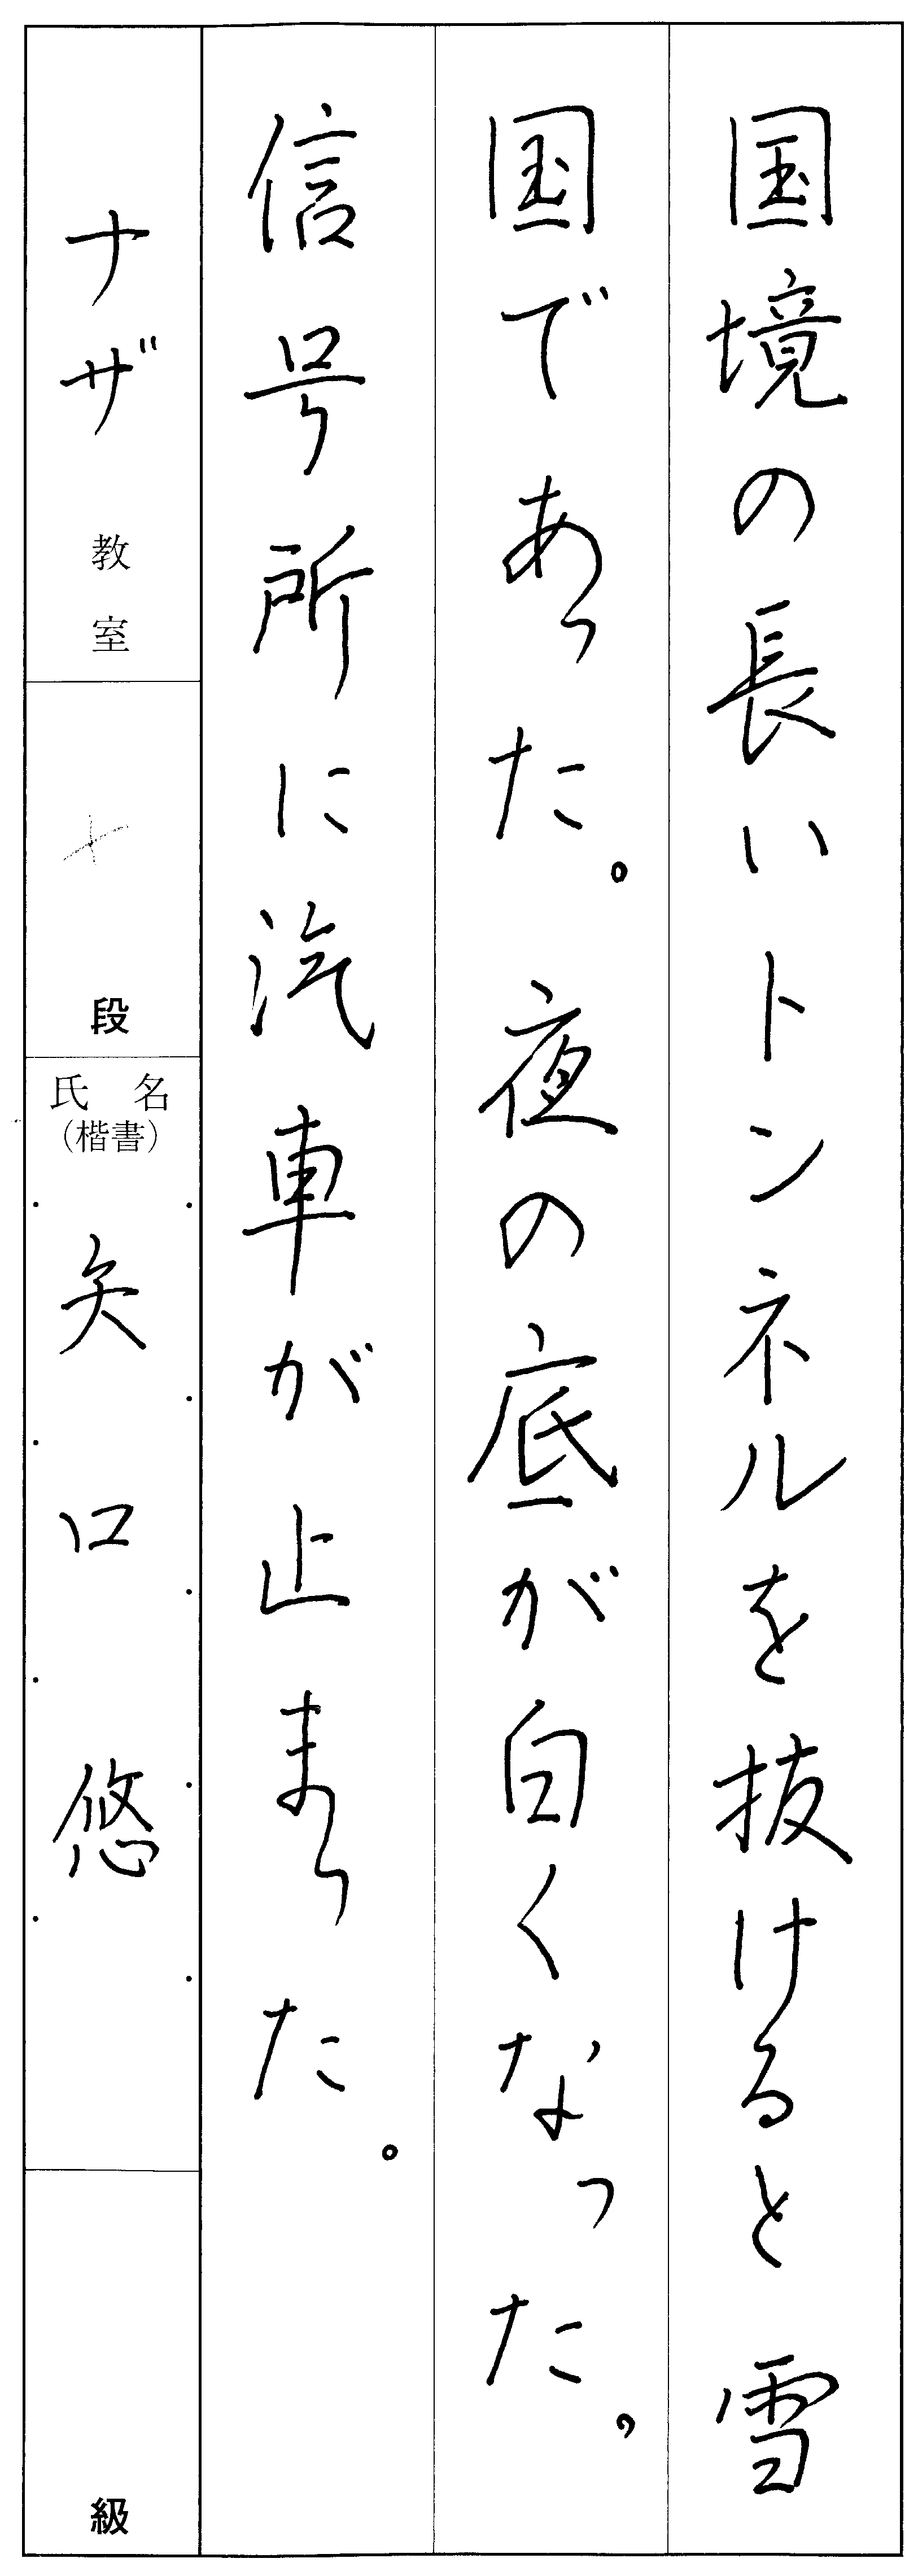 国境の長いトンネルを抜けると雪
国であった。夜の底が白くなった。
信号所に汽車が止まった。
ナザ 教室
段
氏名
（楷書）
矢口悠
級